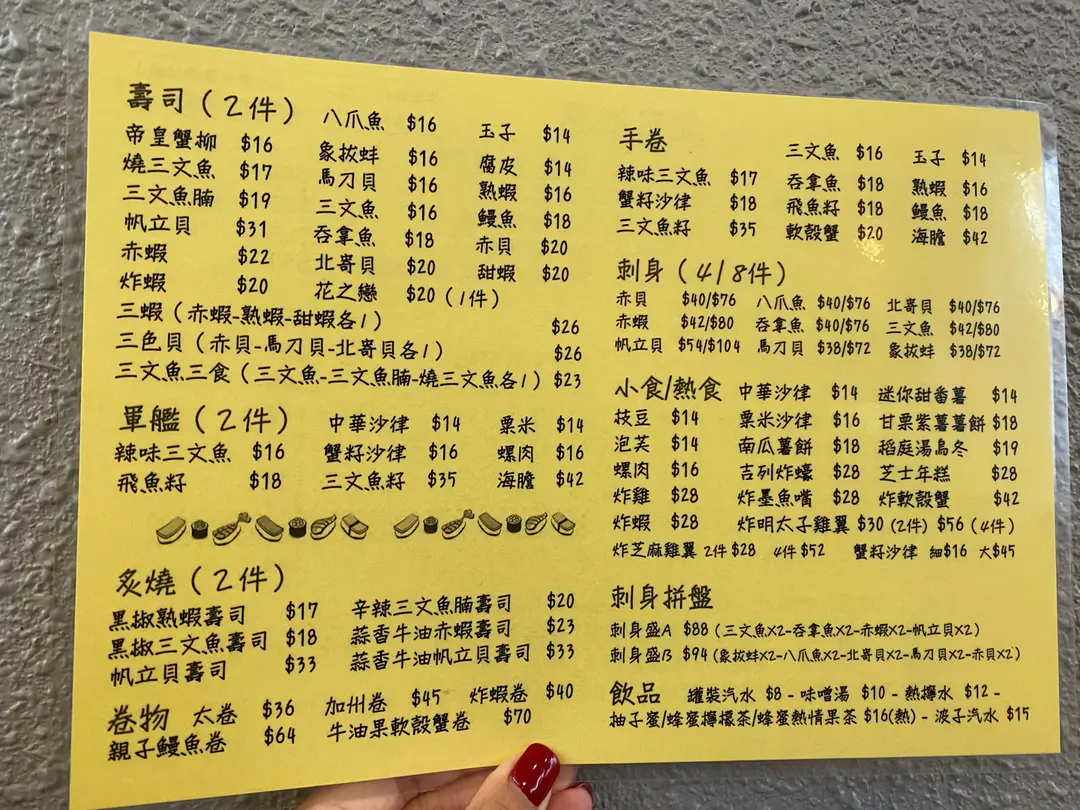 壽司（2件）
帝皇蟹柳 $16
燒三文魚 $17
三文魚腩 $19
帆立貝 $31
赤蝦 $22
炸蝦 $20
八爪魚 $16
象拔蚌 $16
馬刀貝 $16
三文魚 $16
吞拿魚 $18
北寄貝 $20
花之戀 $20（1件）
玉子 $14
腐皮 $14
熟蝦 $16
鰻魚 $18
赤貝 $20
甜蝦 $20
三蝦（赤蝦-熟蝦-甜蝦各1） $26
三色貝（赤貝-馬刀貝-北寄貝各1） $26
三文魚三食（三文魚-三文魚腩-燒三文魚各1） $23
軍艦（2件）
辣味三文魚 $16
飛魚籽 $18
中華沙律 $14
蟹籽沙律 $16
三文魚籽 $35
粟米 $14
螺肉 $16
海膽 $42
炙燒（2件）
黑椒熟蝦壽司 $17
黑椒三文魚壽司 $18
帆立貝壽司 $33
辛辣三文魚腩壽司 $20
蒜香牛油赤蝦壽司 $23
蒜香牛油帆立貝壽司 $33
卷物 太卷 $36 加州卷 $45 炸蝦卷 $40
親子鰻魚卷 $64 牛油果軟殼蟹卷 $70
手卷
辣味三文魚 $17
蟹籽沙律 $18
三文魚籽 $35
三文魚 $16
吞拿魚 $18
飛魚籽 $18
軟殼蟹 $20
玉子 $14
熟蝦 $16
鰻魚 $18
海膽 $42
刺身（4/8件）
赤貝 $40/$76 八爪魚 $40/$76 北寄貝 $40/$76
赤蝦 $42/$80 吞拿魚 $40/$76 三文魚 $42/$80
帆立貝 $54/$104 馬刀貝 $38/$72 象拔蚌 $38/$72
小食/熱食 中華沙律 $14 迷你甜番薯 $14
枝豆 $14 粟米沙律 $16 甘栗紫薯薯餅 $18
泡芙 $14 南瓜薯餅 $18 稻庭湯烏冬 $19
螺肉 $16 吉列炸蠔 $28 芝士年糕 $28
炸雞 $28 炸墨魚嘴 $28 炸軟殼蟹 $42
炸蝦 $28 炸明太子雞翼 $30 (2件) $56 (4件)
炸芝麻雞翼 2件 $28 4件 $52 蟹籽沙律 細$16 大$45
刺身拼盤
刺身盛A $88（三文魚X2-吞拿魚X2-赤蝦X2-帆立貝X2）
刺身盛B $94（象拔蚌X2-八爪魚X2-北寄貝X2-馬刀貝X2-赤貝X2）
飲品 罐裝汽水 $8 - 味噌湯 $10 - 熱檸水 $12 -
柚子蜜/蜂蜜檸檬茶/蜂蜜熱情果茶 $16(熱) - 波子汽水 $15